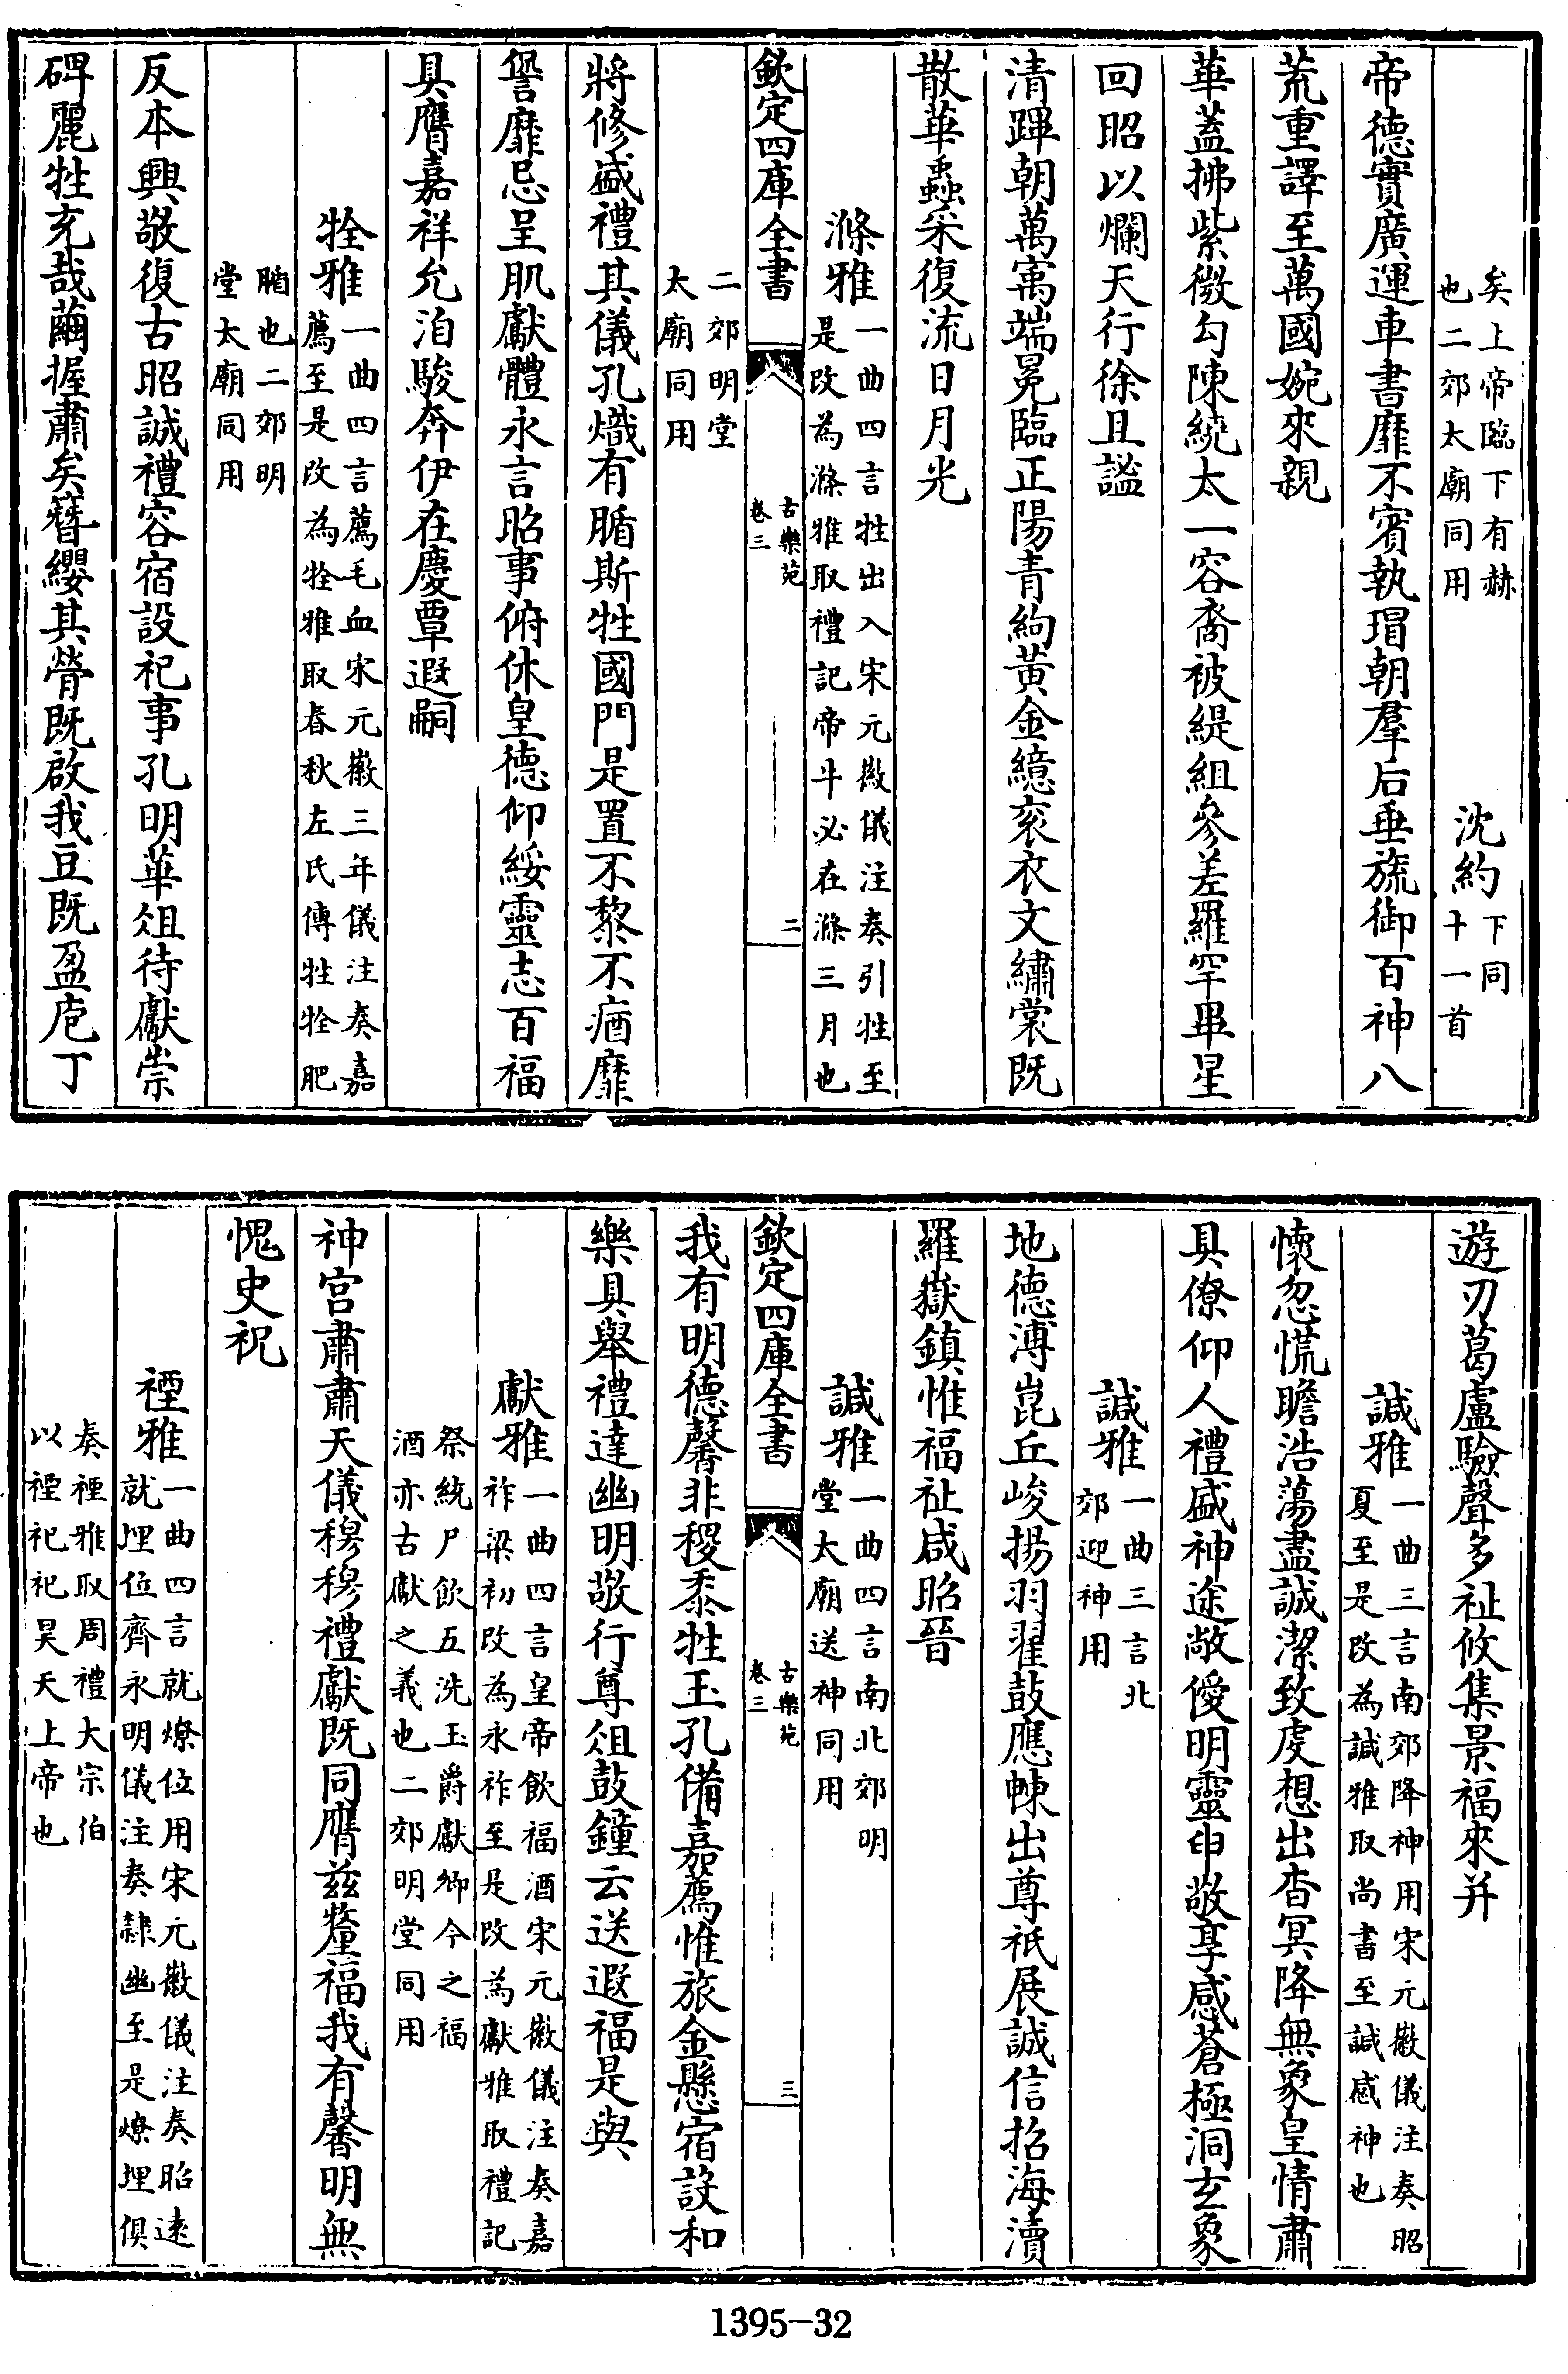 矣上帝臨下有赫
也二郊太廟同用
沈約下同
十一首
帝德實廣運車書靡不賓執瑁朝羣后垂旒御百神八
荒重譯至萬國婉來親
華蓋拂紫微勾陳繞太一容裔被緹組參差羅罕畢星
回昭以爛天行徐且謐
清蹕朝萬寓端冕臨正陽青絇黃金繶衮衣文繡裳既
散華蟲采復流日月光
滌雅一曲四言牲出入宋元徽儀注奏引牲至
是改為滌雅取禮記帝牛必在滌三月也
欽定四庫全書
古樂苑
卷三
二
二郊明堂
太廟同用
將修盛禮其儀孔熾有腯斯牲國門是置不黎不㾕靡
諐靡忌呈肌獻體永言昭事俯休皇德仰綏靈志百福
具膺嘉祥允洎駿奔伊在慶覃遐嗣
牷雅一曲四言薦毛血宋元徽三年儀注奏嘉
薦至是改為牷雅取春秋左氏傳牲牷肥
腯也二郊明
堂太廟同用
反本興敬復古昭誠禮容宿設祀事孔明華俎待獻崇
碑麗牲充哉繭握肅矣簪纓其膋既啟我豆既盈庖丁
遊刃葛盧驗聲多祉攸集景福來并
諴雅一曲三言南郊降神用宋元徽儀注奏昭
夏至是改為諴雅取尚書至諴感神也
懷忽慌瞻浩蕩盡誠潔致虔想出杳冥降無象皇情肅
具僚仰人禮盛神途敞僾明靈申敬享感蒼極洞玄象
諴雅一曲三言北
郊迎神用
地德溥崑丘峻揚羽翟鼓應朄出尊祇展誠信招海瀆
羅嶽鎮惟福祉咸昭晉
諴雅一曲四言南北郊明
堂太廟送神同用
欽定四庫全書
古樂苑
卷三
三
我有明德馨非稷黍牲玉孔備嘉薦惟旅金懸宿設和
樂具舉禮達幽明敬行尊俎鼓鐘云送遐福是與
獻雅一曲四言皇帝飲福酒宋元徽儀注奏嘉
祚梁初改為永祚至是改為獻雅取禮記
祭統尸飲五洗玉爵獻卿今之福
酒亦古獻之義也二郊明堂同用
神宮肅肅天儀穆穆禮獻既同膺兹釐福我有馨明無
愧史祝
禋雅一曲四言就燎位用宋元徽儀注奏昭遠
就埋位齊永明儀注奏隸幽至是燎埋俱
奏禋雅取周禮大宗伯
以禋祀祀昊天上帝也
1395-32